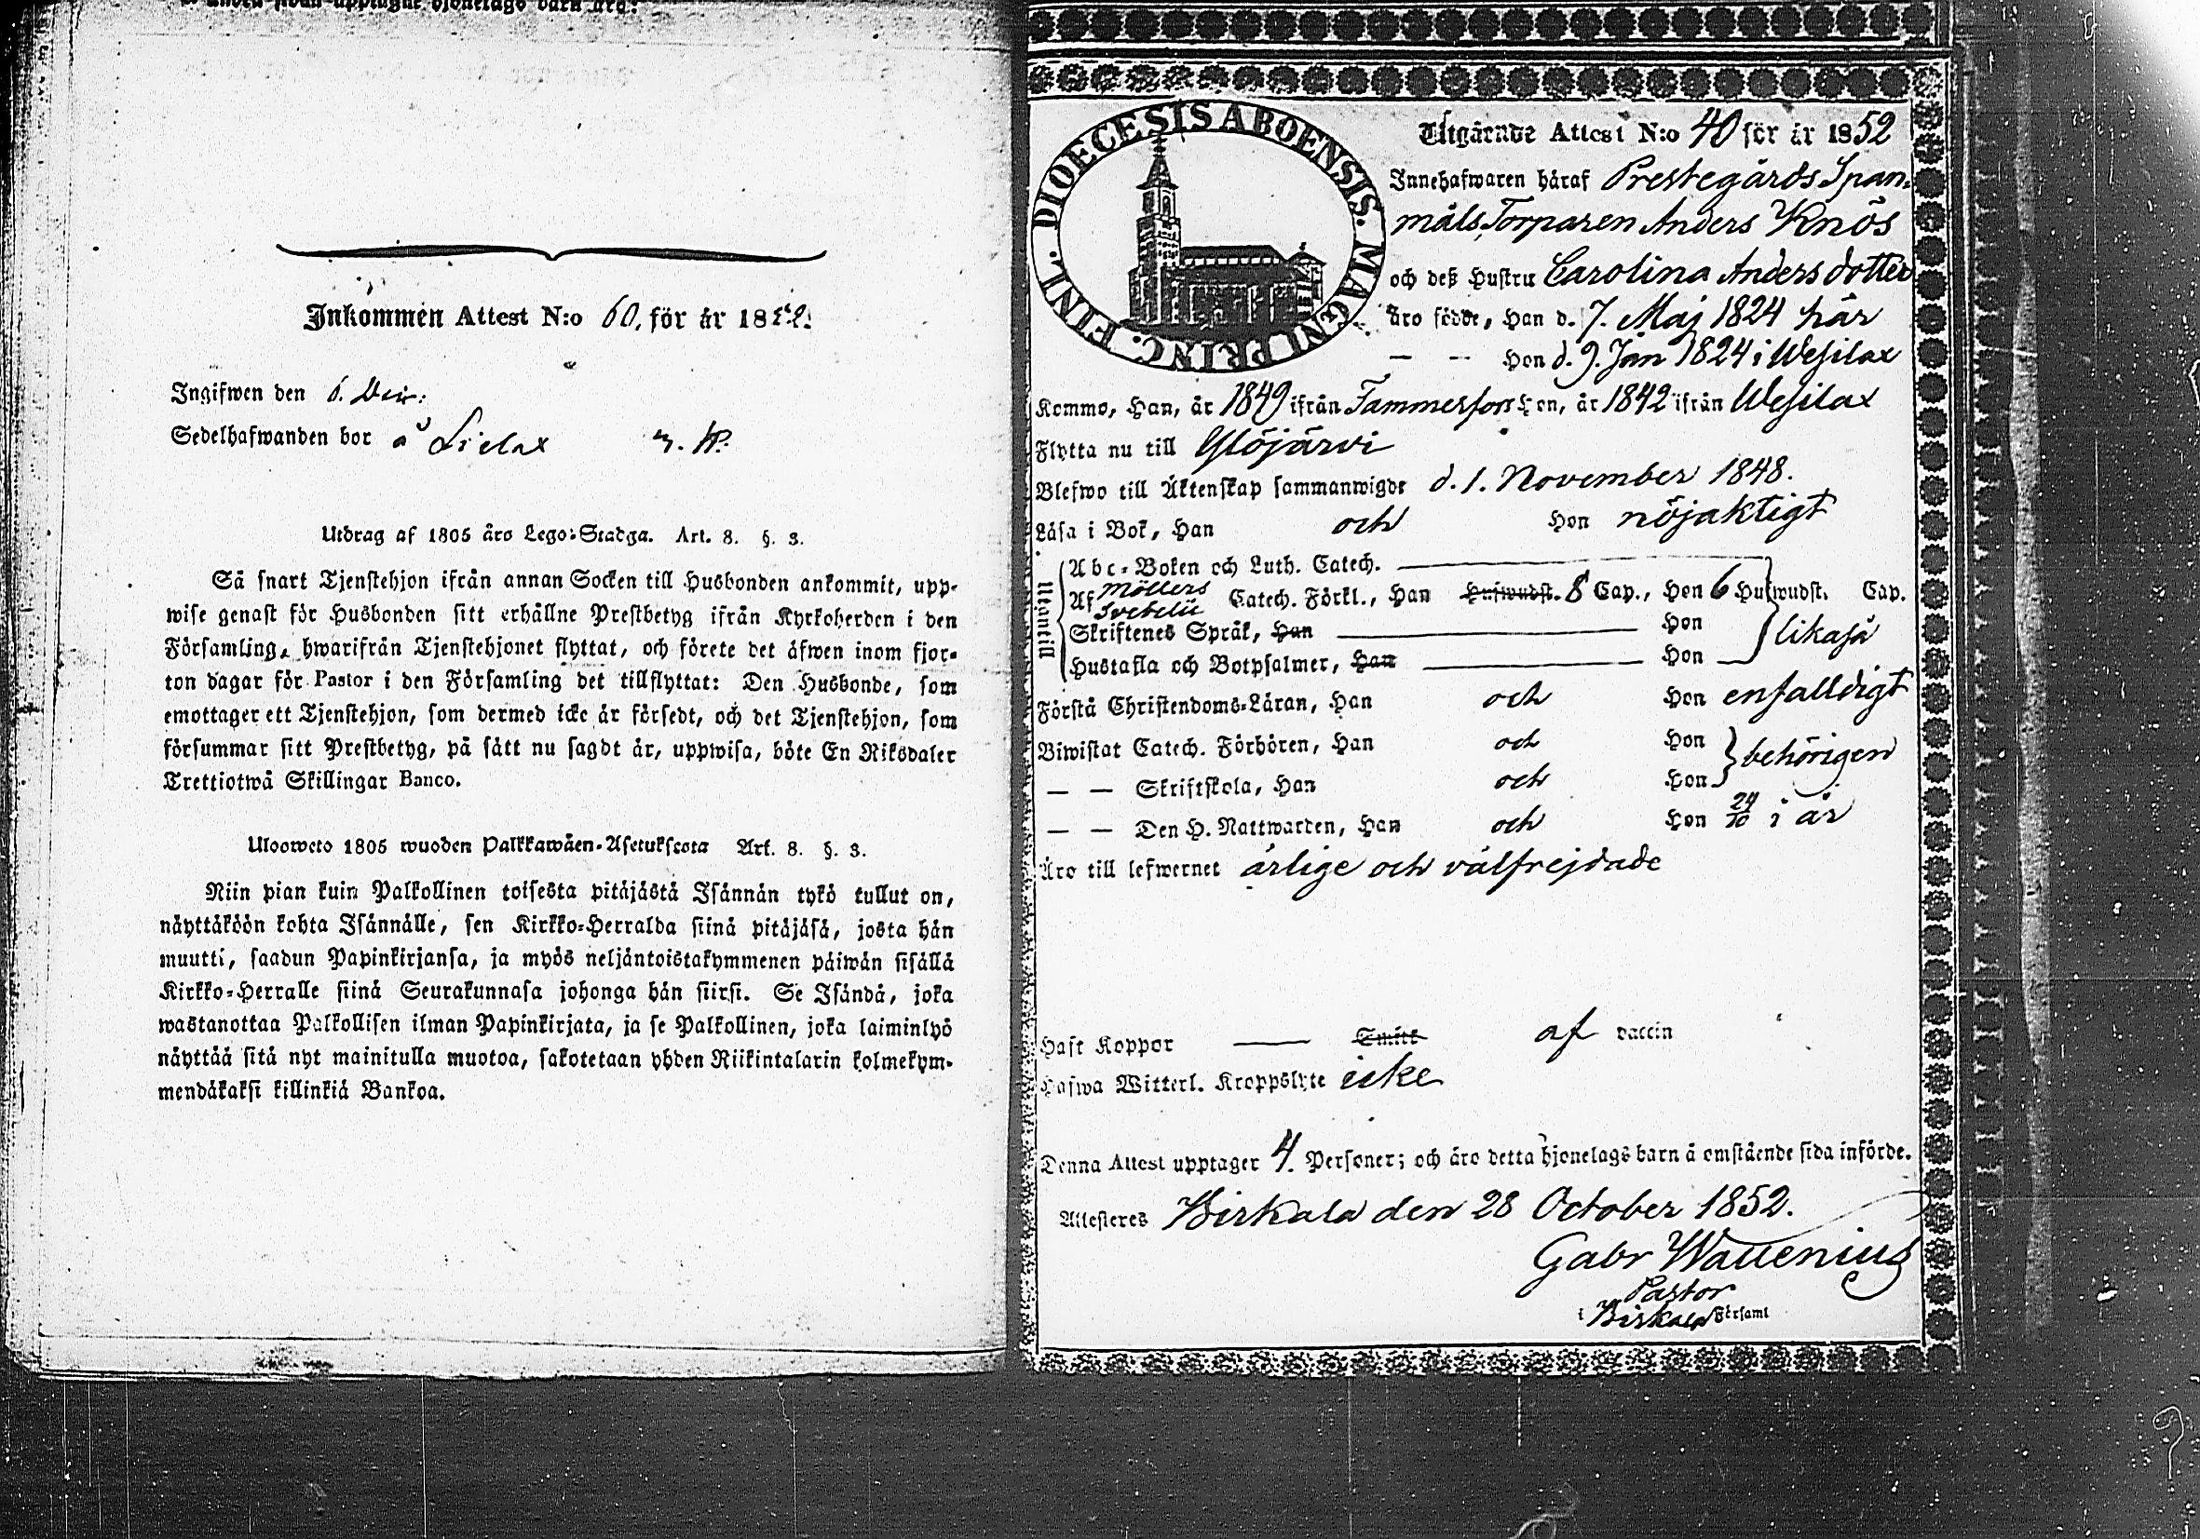 Inkommen Attest N:o 60, för år 1852.
Ingifwen den 6.
Sedelhafwanden bor å Lielax
Utdrag af 1805 åro Lego-Stadga. Art. 8. §. 3.
Så snart Tjenstehjon ifrån annan Socken till Husbonden ankommit, upp-
wise genast för Husbonden sitt erhållne Prestbetyg ifrån Kyrkoherden i den
Församling, hwarifrån Tjenstehjonet flyttat, och förete det äfwen inom fjor-
ton dagar för Pastor i den Församling det tillflyttat: Den Husbonde, som
emottager ett Tjenstehjon, som dermed icke är försedt, och det Tjenstehjon, som
försummar sitt Prestbetyg, på sätt nu sagdt är, uppwisa, böte En Riksdaler
Trettiotwå Skillingar Banco.
Uloosweto 1805 wuoden Palkkawäen-Asetuksesta Art. 8. §. 3.
Niin pian kuin Palkollinen toisesta pitäjästä Isännän tykö tullut on,
näyttäköön kohta Isännälle, sen Kirkko-Herralda siinä pitäjäsä, josta hän
muutti, saadun Papinkirjansa, ja myös neljäntoistakymmenen päiwän sisällä
Kirkko-Herralle siinä Seurakunnasa johonga hän siirsi. Se Isändä, joka
wastanottaa Palkollisen ilman Papinkirjata, ja se Palkollinen, joka laiminlyö
näyttää sitä nyt mainitulla muotoa, sakotetaan yhden Riikintalarin kolmekym-
mendäkaksi killinkiä Bankoa.
DIOECESIS ABOENSIS. MAGNI PRINC. FINL.
Utgående Attest N:o 40 för år 1852
Innehafwaren häraf Prestegårds Span-
måls Torparen Anders Knös
och deß Hustru Carolina Andersdotter
äro födde, Han d. 7. Maj 1824 här
— — Hon d. 9. Jan 1824 i Wesilax
Kommo, Han, år 1849 ifrån Tammerfors Hon, år 1842 ifrån Wesilax
Flytta nu till Ylöjärvi
Blefwo till Äktenskap sammanwigde d. 1. November 1848.
Läsa i Bok, Han och Hon nöjaktigt
Utantill
Abc-Boken och Luth. Catech.
Af Möllers Svebelii Catech. Förkl., Han Hufwudst. 8 Cap., Hon 6 Hufwudst. Cap.
Skriftenes Språk, Han Hon likaså
Hustafla och Botpsalmer, Han Hon
Förstå Christendoms-Läran, Han och Hon enfaldigt
Biwistat Catech. Förhören, Han och Hon behörigen
— — Skriftskola, Han och Hon
— — Den H. Nattwarden, Han och Hon 24/10 i år
Äro till lefwernet ärlige och välfrejdade
Haft Koppor Smitt af vaccin
Hafwa Witterl. Kroppslyte icke
Denna Attest upptager 4. Personer; och äro detta hjonelags barn å omstående sida införde.
Attesteres Birkala den 28 October 1852.
Gabr Wallenius
Pastor
i Birkala Församl